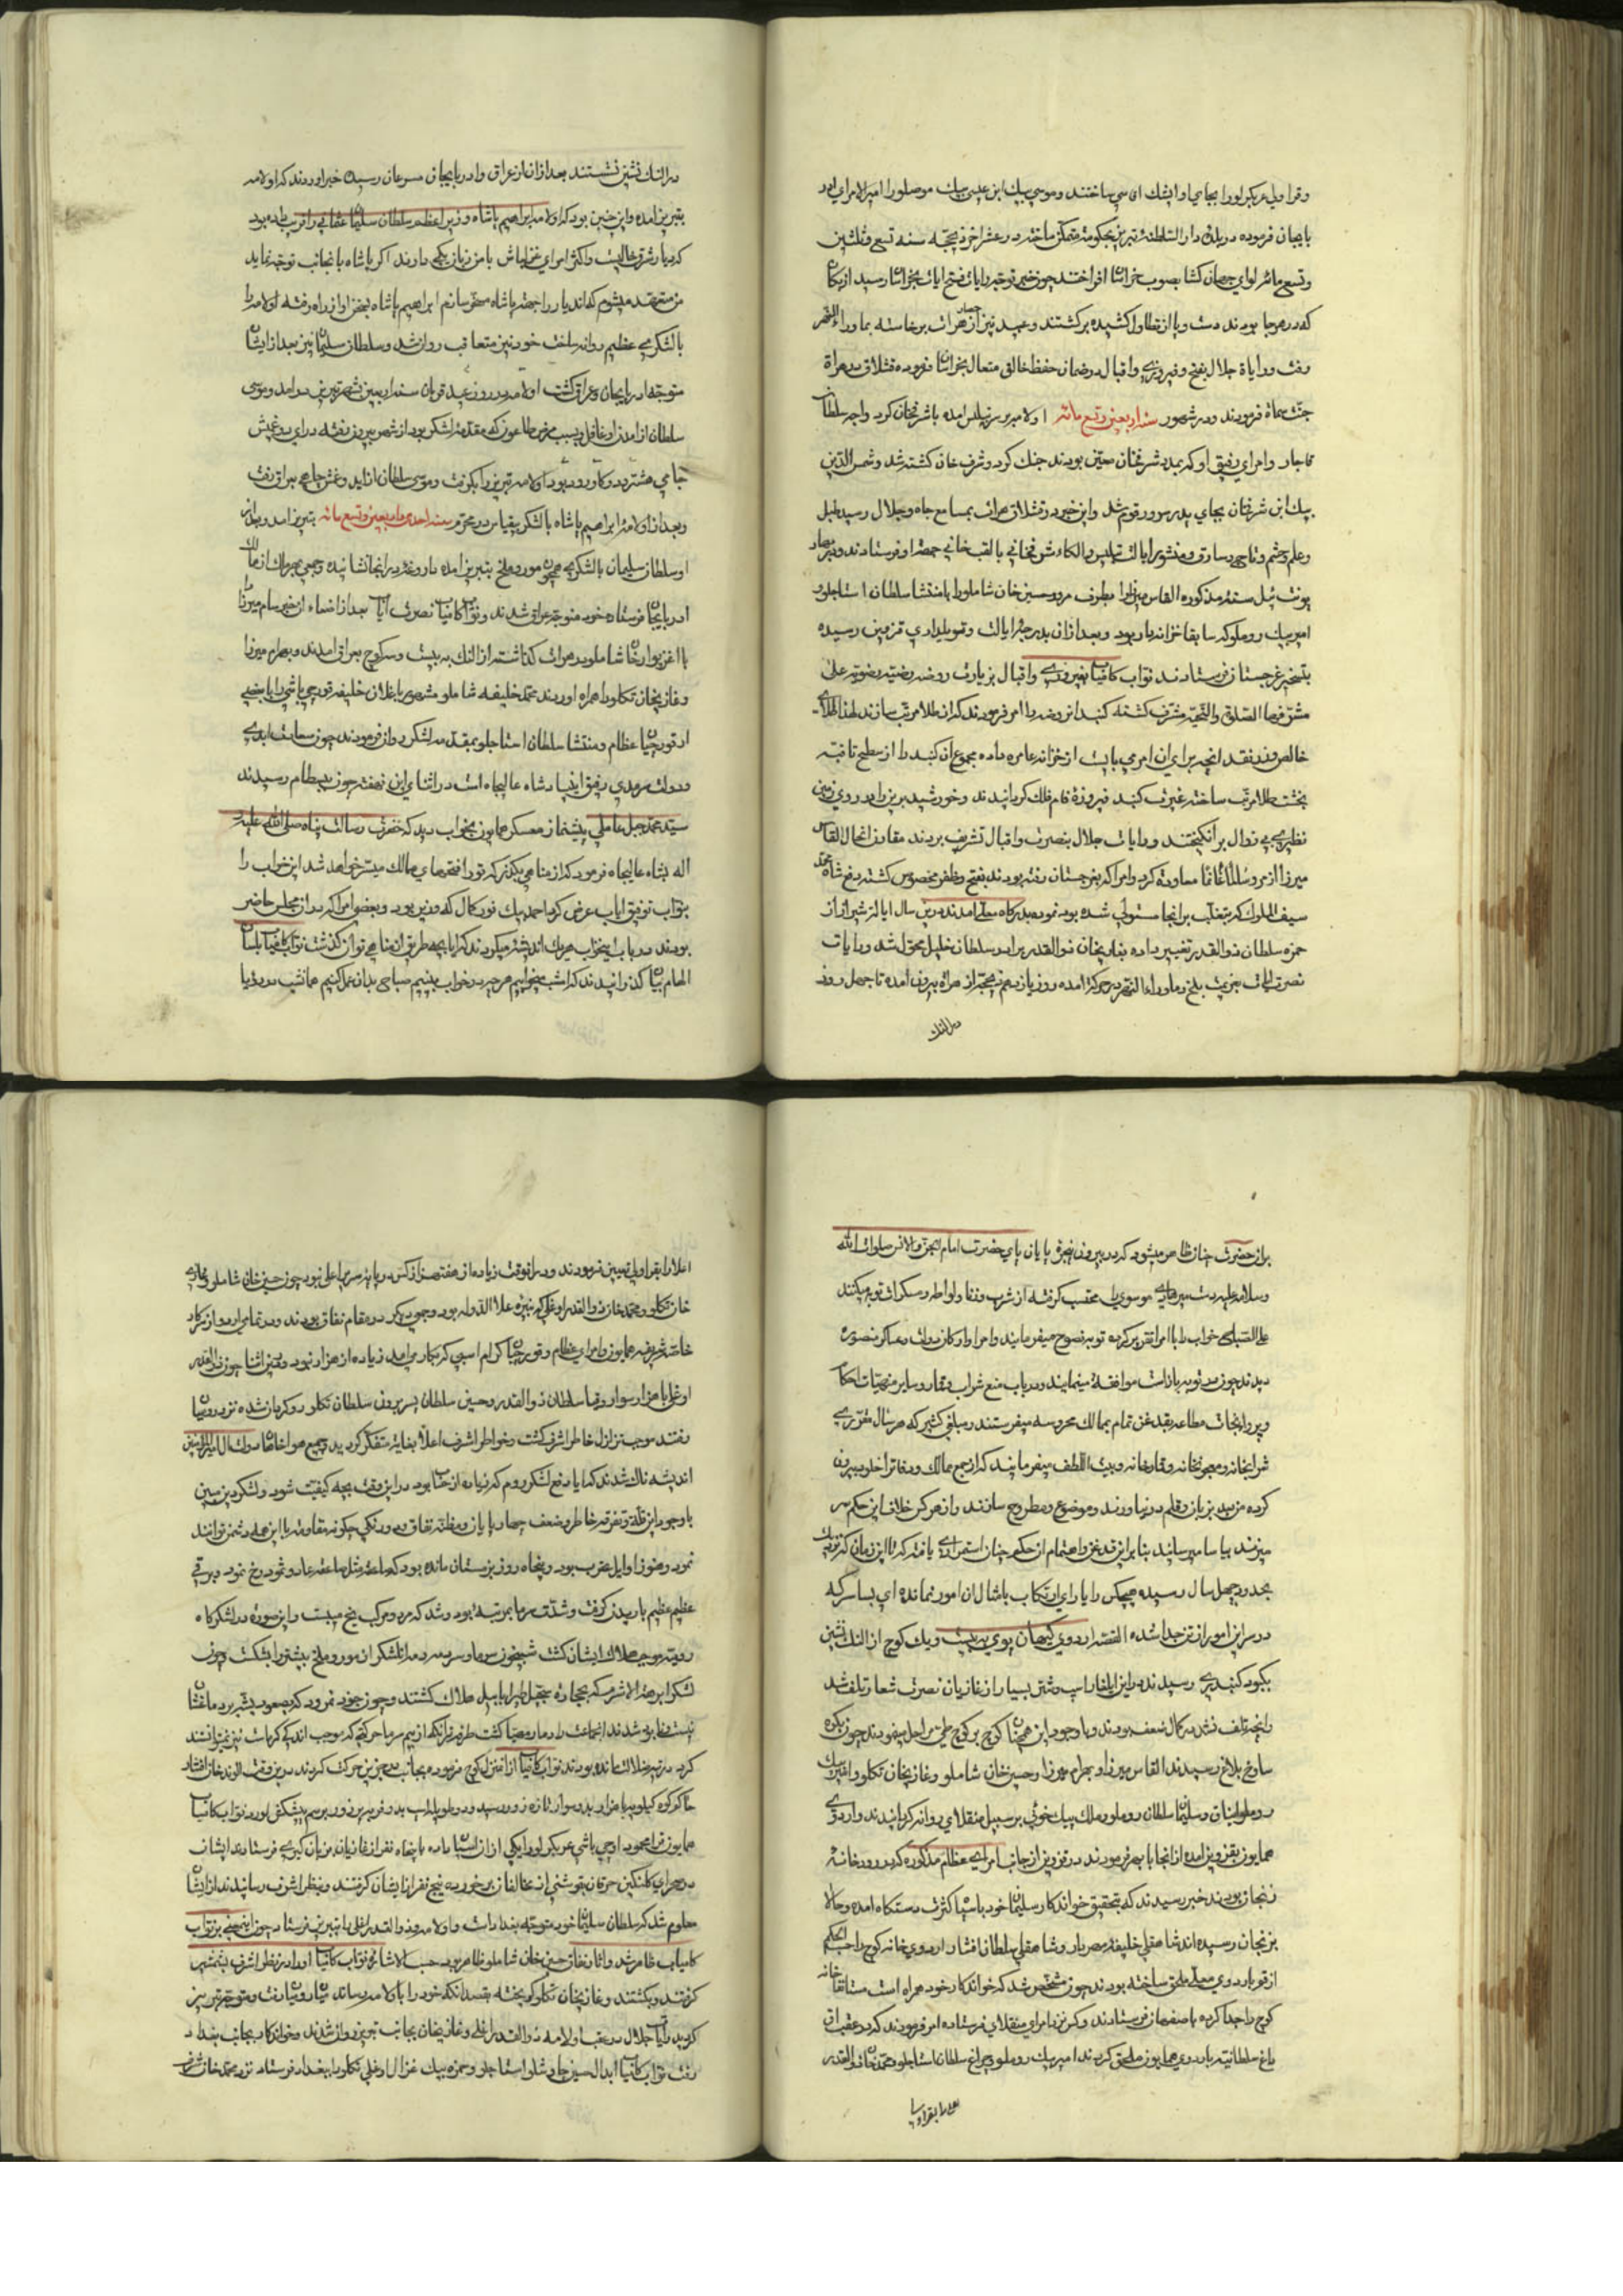 وقراویل عربکیرلورا بجای او ایشک اقاسی ساختند وموسی بیک ابن عیسی بیک موصلورا امیرالامرای ادر
بایجان فرموده در بلدۀ دارالسلطنۀ تبریز بحکومة متمکن ساختند در عشر اخر ذیحجه سنه تسع وثلثین
وتسع مائه لوای جهان کشا بصوب خراسان افراختند چون خبر توجه رایات فتح ایات بخراسان رسید ازبکان
که در هرجا بودند دست وپا از تطاول کشیده برکشتند وعبید نیز از حصار هرات برخاسته بماوراءالنهر
رفت ورایاة جلال بفتح وفیروزی واقبال در ضمان حفظ خالق متعال بخراسان فرموده قشلاق در هراة
جنت سماة فرمودند ودر شهور سنه اربعین وتسع مائه اولامه بر سر تفلیس امده با شرفخان کرد واجه سلطان
قاجار وامرای رفیق او که بمدد شرفخان معین بودند جنک کرد وشرف خان کشته شد وشمس الدین
بیک ابن شرفخان بجای پدر مرسوم رقوم شد واین خبر در قشلاق هرات بمسامع جاه وجلال رسید طبل
وعلم وحشم وتاج ومنشور ایالت تفلیس والکاء شرفخانی بالقب خانی جهة او فرستادند ودر بهار
یونت ئیل سنه مذکوره القاس میرزارا بطرف مرو وحسین خان شاملورا با منتشا سلطان استاجلو و
امیر بیک روملو که سابقا خزانه دار بود وبعد از ان بدرجۀ ایالت وتمویلداری قزوین رسیده
بتسخیر غرجستان فرستادند نواب کامیاب بفیروزی واقبال بزیارت روضه رضیه رضویه علی
مشرفها السلام والتحیه مشرف کشته کنبد ان روضه را امر فرمودند که از طلا مرتب سازند لهذا طلای
خالص ونقد انچه برای ان امر می بایست از خزانه عامره داده مجموع ان کنبد را از سطح تا قبه
بخشت طلا مرتب ساخته غیرت کنبد فیروزۀ فام فلک کردانیدند وخورشید بر یزوارد روی زمین
نظیری بی زوال بر انکیختند ورایات جلال بنصرت واقبال تشریف بردند مقارن انحال القاس
میرزا از مرو سلطانا غانا معاودة کرد وامرا که بغرجستان رفته بودند بفتح وظفر مخصوص کشته دفع شاه محمد
سیف الملوک که بتغلب بر انجا مستولی شده بود نموده بدرکاه معلی امدند ودرین سال ایالت شیراز از
حمزه سلطان ذوالقدر تغییر داده بغازیخان ذوالقدر برادر سلطان خلیل محول شد ورایات
نصرت ایات بعزیمت بلخ وماوراءالنهر در حرکة امده روز یازدهم ذیحجه از هراة بیرون امده تا چهل روز
در النک
در النک نشین نشستند بعد از ان از عراق وادربایجان مسرعان رسیده خبر اوردند که اولامه
بتبریز امده واین چنین بود که اولامه ابراهیم پاشاه وزیر اعظم سلطان سلیمان عثمانی را فریب داده بود
که دیار شرق خالیست واکثر امرای قزلباش با من زبان یکی دارند اکر پاشاه بانجانب توجه نماید
من متعهد میشوم که اندیار را جهة پاشاه مسخر سازم ابراهیم پاشاه بسخن او از راه رفته اولامه را
با لشکری عظیم روانه ساخت خود نیز متعاقب روان شد وسلطان سلیمان نیز بعد از ایشان
متوجه ادربایجان وعراق کشت اولامه در روز عید قربان سنه اربعین شهر تبریز درامد وموسی
سلطان از امدن او غافل وبسبب مرض طاعون که مقدمۀ لشکر بود از شهر بیرون رفته در ای دوغمیش
جای هشترود وکاورود بود اولامه تبریز را بکرفت وموسی سلطان از اید وغمش جای بعراق رفت
وبعد از اولامه ابراهیم پاشاه با لشکر بیقیاس در محرم سنه احدی واربعین وتسع مائه بتبریز امد وبعد از
او سلطان سلیمان با لشکری همچون مور وملخ بتبریز امده داروغه در انجا نشانیده وجمعی بهر یک از محال
ادربایجان فرستاده خود متوجه عراق شدند ونواب کامیاب نصرت ایاب بعد از اصغاء ان خبر سام میرزا
با اغزیوار خان شاملو در هرات کذاشته از النک به بیست وسه کوچ بعراق امدند وبهرام میرزا
وغازیخان تکلو را همراه اوردند محمد خلیفه شاملو مشهور باغلان خلیفه قورچی باشی را با بعضی
از قورچیان عظام ومنتشا سلطان استاجلو بمقدمه لشکر روان فرمودند چون سعادت ابدی
ودولت سرمدی رفیق این پادشاه عالیجاه است در اثنای این نهضة چون ببسطام رسیدند
سید محمد جبل عاملی پیشنماز معسکر همایون بخواب دید که حضرت رسالت پناه صلی الله علیه و
اله بشاه عالیجاه فرمود که از مناهی بکذر که تو را فتحهای ممالک میسر خواهد شد این خواب را
بنواب توفیق ایاب عرض کرد احمد بیک نور کمال که وزیر بود وبعضی امرا که در ان مجلس حاضر
بودند در باب اینخواب هریک اندیشه میکردند که ایا بچه طریق از مناهی توان کذشت نواب کامیاب بلسان
الهام بیان کذرانیدند که امشب بخوابیم هرچه در خواب بینیم صباحی بدان عمل کنیم همانشب در رؤیا
بران حضرت چنان ظاهر میشود که در بیرون پنجرۀ پایان پای حضرت امام الجن والانس صلوات الله
وسلامه علیه دست میر هادی موسوی محتسب کرفته از شرب وزنا ولواطه ومسکرات توبه میکنند
علی الصباح خواب را با امرا تقریر کرده توبه نصوح میفرمایند وامرا وارکان دولت وعساکر منصوره
دیدند چون در توبه باز است موافقة مینمایند ودر باب منع شراب وقمار وسایر منهیات احکام
وپروانجات مطاعه بقدغن تمام بممالک محروسه میفرستند ومبلغی کثیر که هرسال مقرری
شرابخانه ومعجونخانه وقمارخانه وبیت اللطف میفرمایند که از جمع ممالک ودفاتر اخلو بیرون
کرده من بعد بر زبان وقلم در نیاورند وموضوع ومطروح سازند واز هر کس خلاف این حکم سر
میزند بیاسا میرسانید بنابراین قدغن واهتمام از حکم چنان استمراری یافته که تا این زمان که توبه
بحدود چهل سال رسیده هیچکس را یارای ارتکاب بامثال ان امور نمانده ای بسا سر که
در سر این امور از تن جدا شده القصه اردوی کیهان پوی به بیست ویک کوچ از النک نشین
بکبود کنبد ری رسیدند درین ایلغار اسب وشتر بسیار از غازیان نصرت شعار تلف شد
وانچه تلف نشد در کمال ضعف بودند وبا وجود این همچنان کوچ بر کوچ طی مراحل میفرمودند چون بکوه
ساوخ بلاغ رسیدند القاس میرزا وبهرام میرزا وحسین خان شاملو وغازیخان تکلو وامیر بیک
روملو وسلیمان سلطان روملو وملک بیک خوئی بر سبیل منقلای روانه کردانیدند واردوی
همایون بقزوین امده از انجا بابهر فرمودند در قزوین از جانب امرای عظام مذکوره که در رودخانۀ
زنجان بودند خبر رسیدند که بتحقیق خواندکار سلیمان خود با سپاه کثرت دستکاه امده وحالا
بزنجان رسیده اند شاهقلی خلیفۀ مهردار وشاهقلی سلطان افشار اردوی خانه کوچ را حسب الحکم
از قو باردوی معلی ملحق ساخته بودند چون مشخص شد که خواندکار خود همراه است مستانقا خانه
کوچ را جدا کرده باصفهان فرستادند وکس نزد امرای منقلای فرستاده امر فرمودند که در عقب
باغ سلطانیه باردوی همایون ملحق کردند امیر بیک روملو وچراغ سلطان استاجلو ومحمد خان ذوالقدر
اعلا را بقراولی
اعلا را بقراولی تعیین فرمودند ودر انوقت زیاده از هفت هزار کس در پایه سریر اعلی نبود چون حسین خان شاملو وغازی
خان تکلو ومحمد خان ذوالقدر اوغلی که نبیرۀ علاء الدوله بود وجمعی دیکر در مقام نفاق بودند ودر تمامی اردو از سرکار
خاصه شریفه همایون وامرای عظام وقورچیان کرام اسبی که بکار می امد زیاده از هزار نبود درین اثنا چون ذوالقدر
اوغلی با هزار سوار وقیا سلطان ذوالقدر وحسین سلطان پسر برون سلطان تکلو روکردان شده نزد رومیان
رفتند موجب تزلزل خاطر اشرف کشت وخواطر اشرف اعلا بغایة متفکر کردید وجمیع هواخواهان دولت لایزال از این
اندیشه ناک شدند که ایا دفع لشکر روم که زیاده از حساب بود در این وقت بچه کیفیت شود ولشکر دین مبین
با وجود این قلة وتفرقه خاطر وضعف چهارپایان ومظنه نفاق ودو رنکی چکونه مقاومة با این همه دشمن توانند
نمود وهنوز اوایل عقرب بود وپنجاه روز بزمستان مانده بود که ساعقه مثل صاعقه عاد وثمود رخ نمود وبرقی
عظیم عظیم باریدن کرفت وشدت سرما بمرتبۀ بود وشد که مرد ومرکب یخ میبست واین صورة در لشکرکاه
رومیه موجب هلاک ایشان کشت شبیخون سرما وسرمه دمه انلشکر از مور وملخ بیشتر را بشکست وچون
لشکر ابرهة الاشرم که بحجارة سجیل طیرا ابابیل هلاک کشتند وچون جنود نمرود که بصعود بشه برد ما نفشا
نیست ونابود شدند انجماعت را دمار ومضمحل کشت طرفه تر انکه از بیم سرما حرکتی که موجب اندک کرما است نیز نمیتوانستند
کرد در تیه ضلالت مانده بودند نواب کامیاب از ان منزل کوچ فرموده بجانب در جزین حرکت کردند درین وقت الوند خان افشار
حاکم کوه کیلویه با هزار ودویست سوار تازه زور رسید ودویست اسب بدو فربه پر زور برسم پیشکش اورد نواب کامیاب
همایون قرا محمود اوجی باشی عربکیرلو را یکی از ان اسبان داده با پنجاه نفر از غازیان بزبان کیری فرستاد ایشان
در صحرای کلنکین خرقان بقوشی از مخالفان برخورده پنج نفر از ایشان کرفتند وبنظر اشرف رسانیدند از ایشان
معلوم شد که سلطان سلیمان خود متوجه بغداد است واولامه وذوالقدر اوغلی را بتبریز فرستاد چون اینمعنی بر نواب
کامیاب ظاهر شد واثار نفاق حسین خان شاملو ظاهر بود حسب الاشارۀ نواب کامیاب او را در نظر اشرف بشمشیر
کرفتند وبکشتند وغازیخان تکلو کریخته بقصد انکه خود را باولامه رساند بتبریز رفت ومتوجه تبریز
کردید ورایات جلال در عقب اولامه ذوالقدر اوغلی وغازیخان بجانب تبریز روان شدند وخواندکار بجانب بغداد
رفت نواب کامیاب ابدال حسین چاوشلو استاجلو وحمزه بیک غزال اوغلی تکلو را ببغداد فرستاد نزد محمد خان شرف